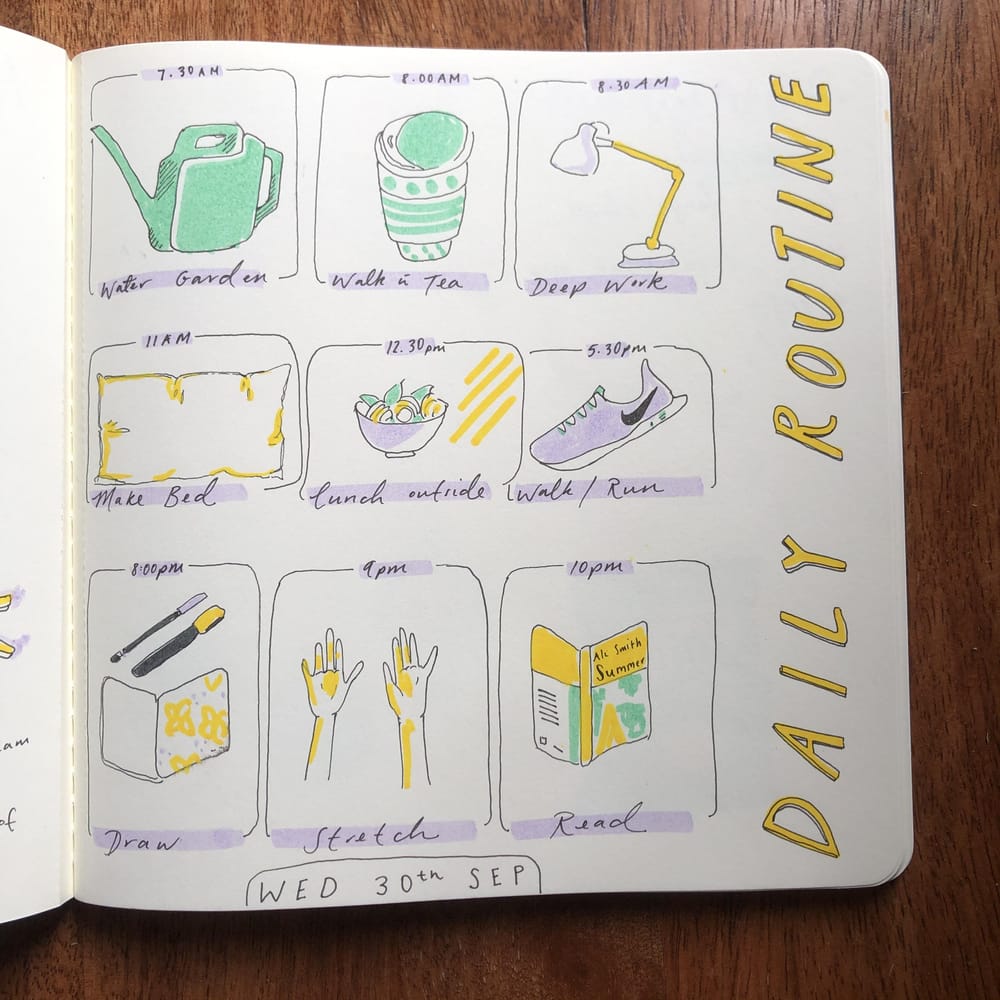 am
of
DAILY ROUTINE
7.30AM
Water Garden
8.00AM
Walk Tea
8.30AM
Deep Work
11AM
Make Bed
12.30pm
Lunch outside
5.30pm
Walk / Run
8:00pm
Draw
9pm
Stretch
10pm
Ali Smith
Summer
Read
WED 30th SEP